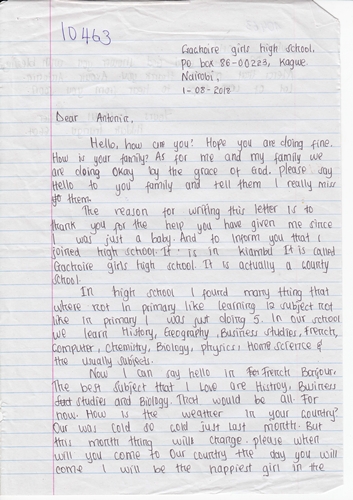 10463
Gachoire girls high school.
PO. box 86-00223, Kague.
Nairobi.
1-08-2018
Dear Antonia,
Hello, how are you? Hope you are doing fine.
How is your family? As for me and my family we
are doing okay by the grace of God. Please say
Hello to you family and tell them I really miss
them.
The reason for writing this letter is to
thank you for the help you have given me since
I was just a baby. And to inform you that I
joined high school. It is in Kiambu It is called
Gachoire girls high school. It is actually a county
school.
In high school I found many thing that
where not in primary like learning 12 subject not
like in primary I was just doing 5. In our school
we learn History, Geography, Business studies, French,
Computer, Chemistry, Biology, physics, Home science &
the usually subjects.
Now I can say hello in French Bonjour.
The best subject that I love are Histroy, Business
studies and Biology. That would be all. For
now. How is the weather in your country?
Our was cold so cold just last month. But
this month thing will change. please when
will you come to our country the day you will
come I will be the happiest girl in the